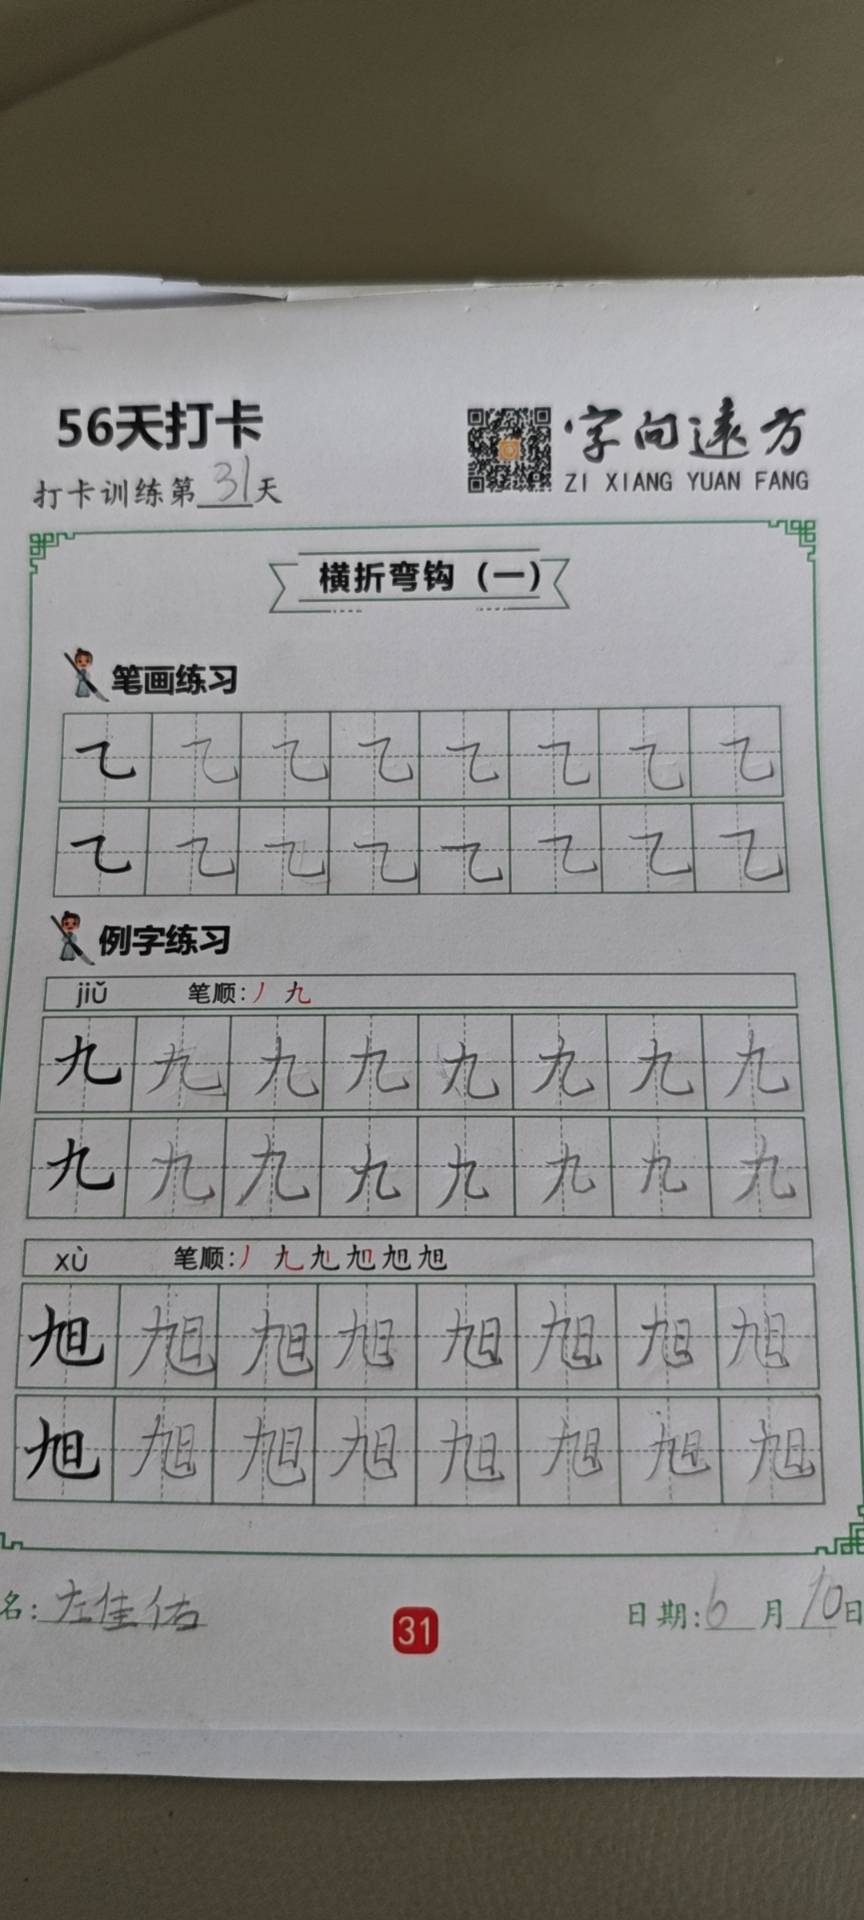 56天打卡
字向远方
ZI XIANG YUAN FANG
打卡训练第31天
横折弯钩（一）
笔画练习
㇈ ㇈ ㇈ ㇈ ㇈ ㇈ ㇈ ㇈
㇈ ㇈ ㇈ ㇈ ㇈ ㇈ ㇈ ㇈
例字练习
jiǔ 笔顺：丿 九
九 九 九 九 九 九 九 九
九 九 九 九 九 九 九 九
xù 笔顺：丿 九 九 旭 旭 旭
旭 旭 旭 旭 旭 旭 旭 旭
旭 旭 旭 旭 旭 旭 旭 旭
名：左佳佑
31
日期：6月10日